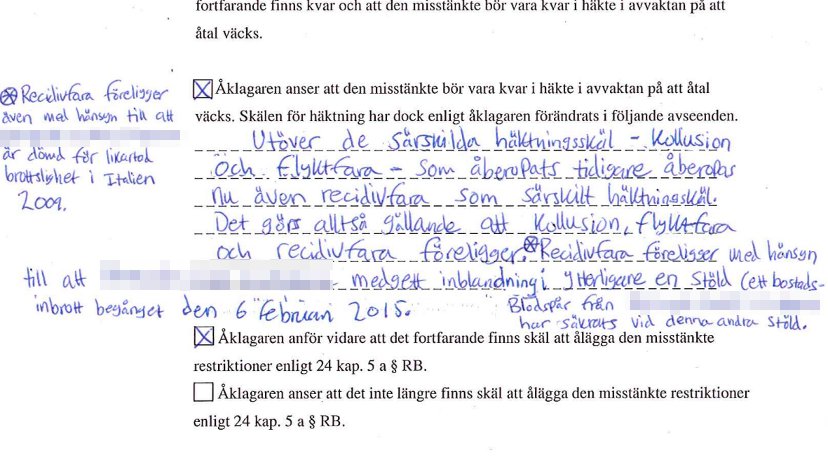 fortfarande finns kvar och att den misstänkte bör vara kvar i häkte i avvaktan på att
åtal väcks.
Åklagaren anser att den misstänkte bör vara kvar i häkte i avvaktan på att åtal
väcks. Skälen för häktning har dock enligt åklagaren förändrats i följande avseenden.
Utöver de särskilda häktningsskäl - kollusion
och flyktfara - som åberopats tidigare åberopas
nu även recidivfara som särskilt häktningsskäl.
Det görs alltså gällande att kollusion, flyktfara
och recidivfara föreligger. Recidivfara föreligger med hänsyn
till att medgett inblandning i ytterligare en stöld (ett bostads-
inbrott begånget den 6 februari 2015.
Blodspår från
har säkrats vid denna andra stöld.
Recidivfara föreligger
även med hänsyn till att
är dömd för likartad
brottslighet i Italien
2009.
Åklagaren anför vidare att det fortfarande finns skäl att ålägga den misstänkte
restriktioner enligt 24 kap. 5 a § RB.
Åklagaren anser att det inte längre finns skäl att ålägga den misstänkte restriktioner
enligt 24 kap. 5 a § RB.